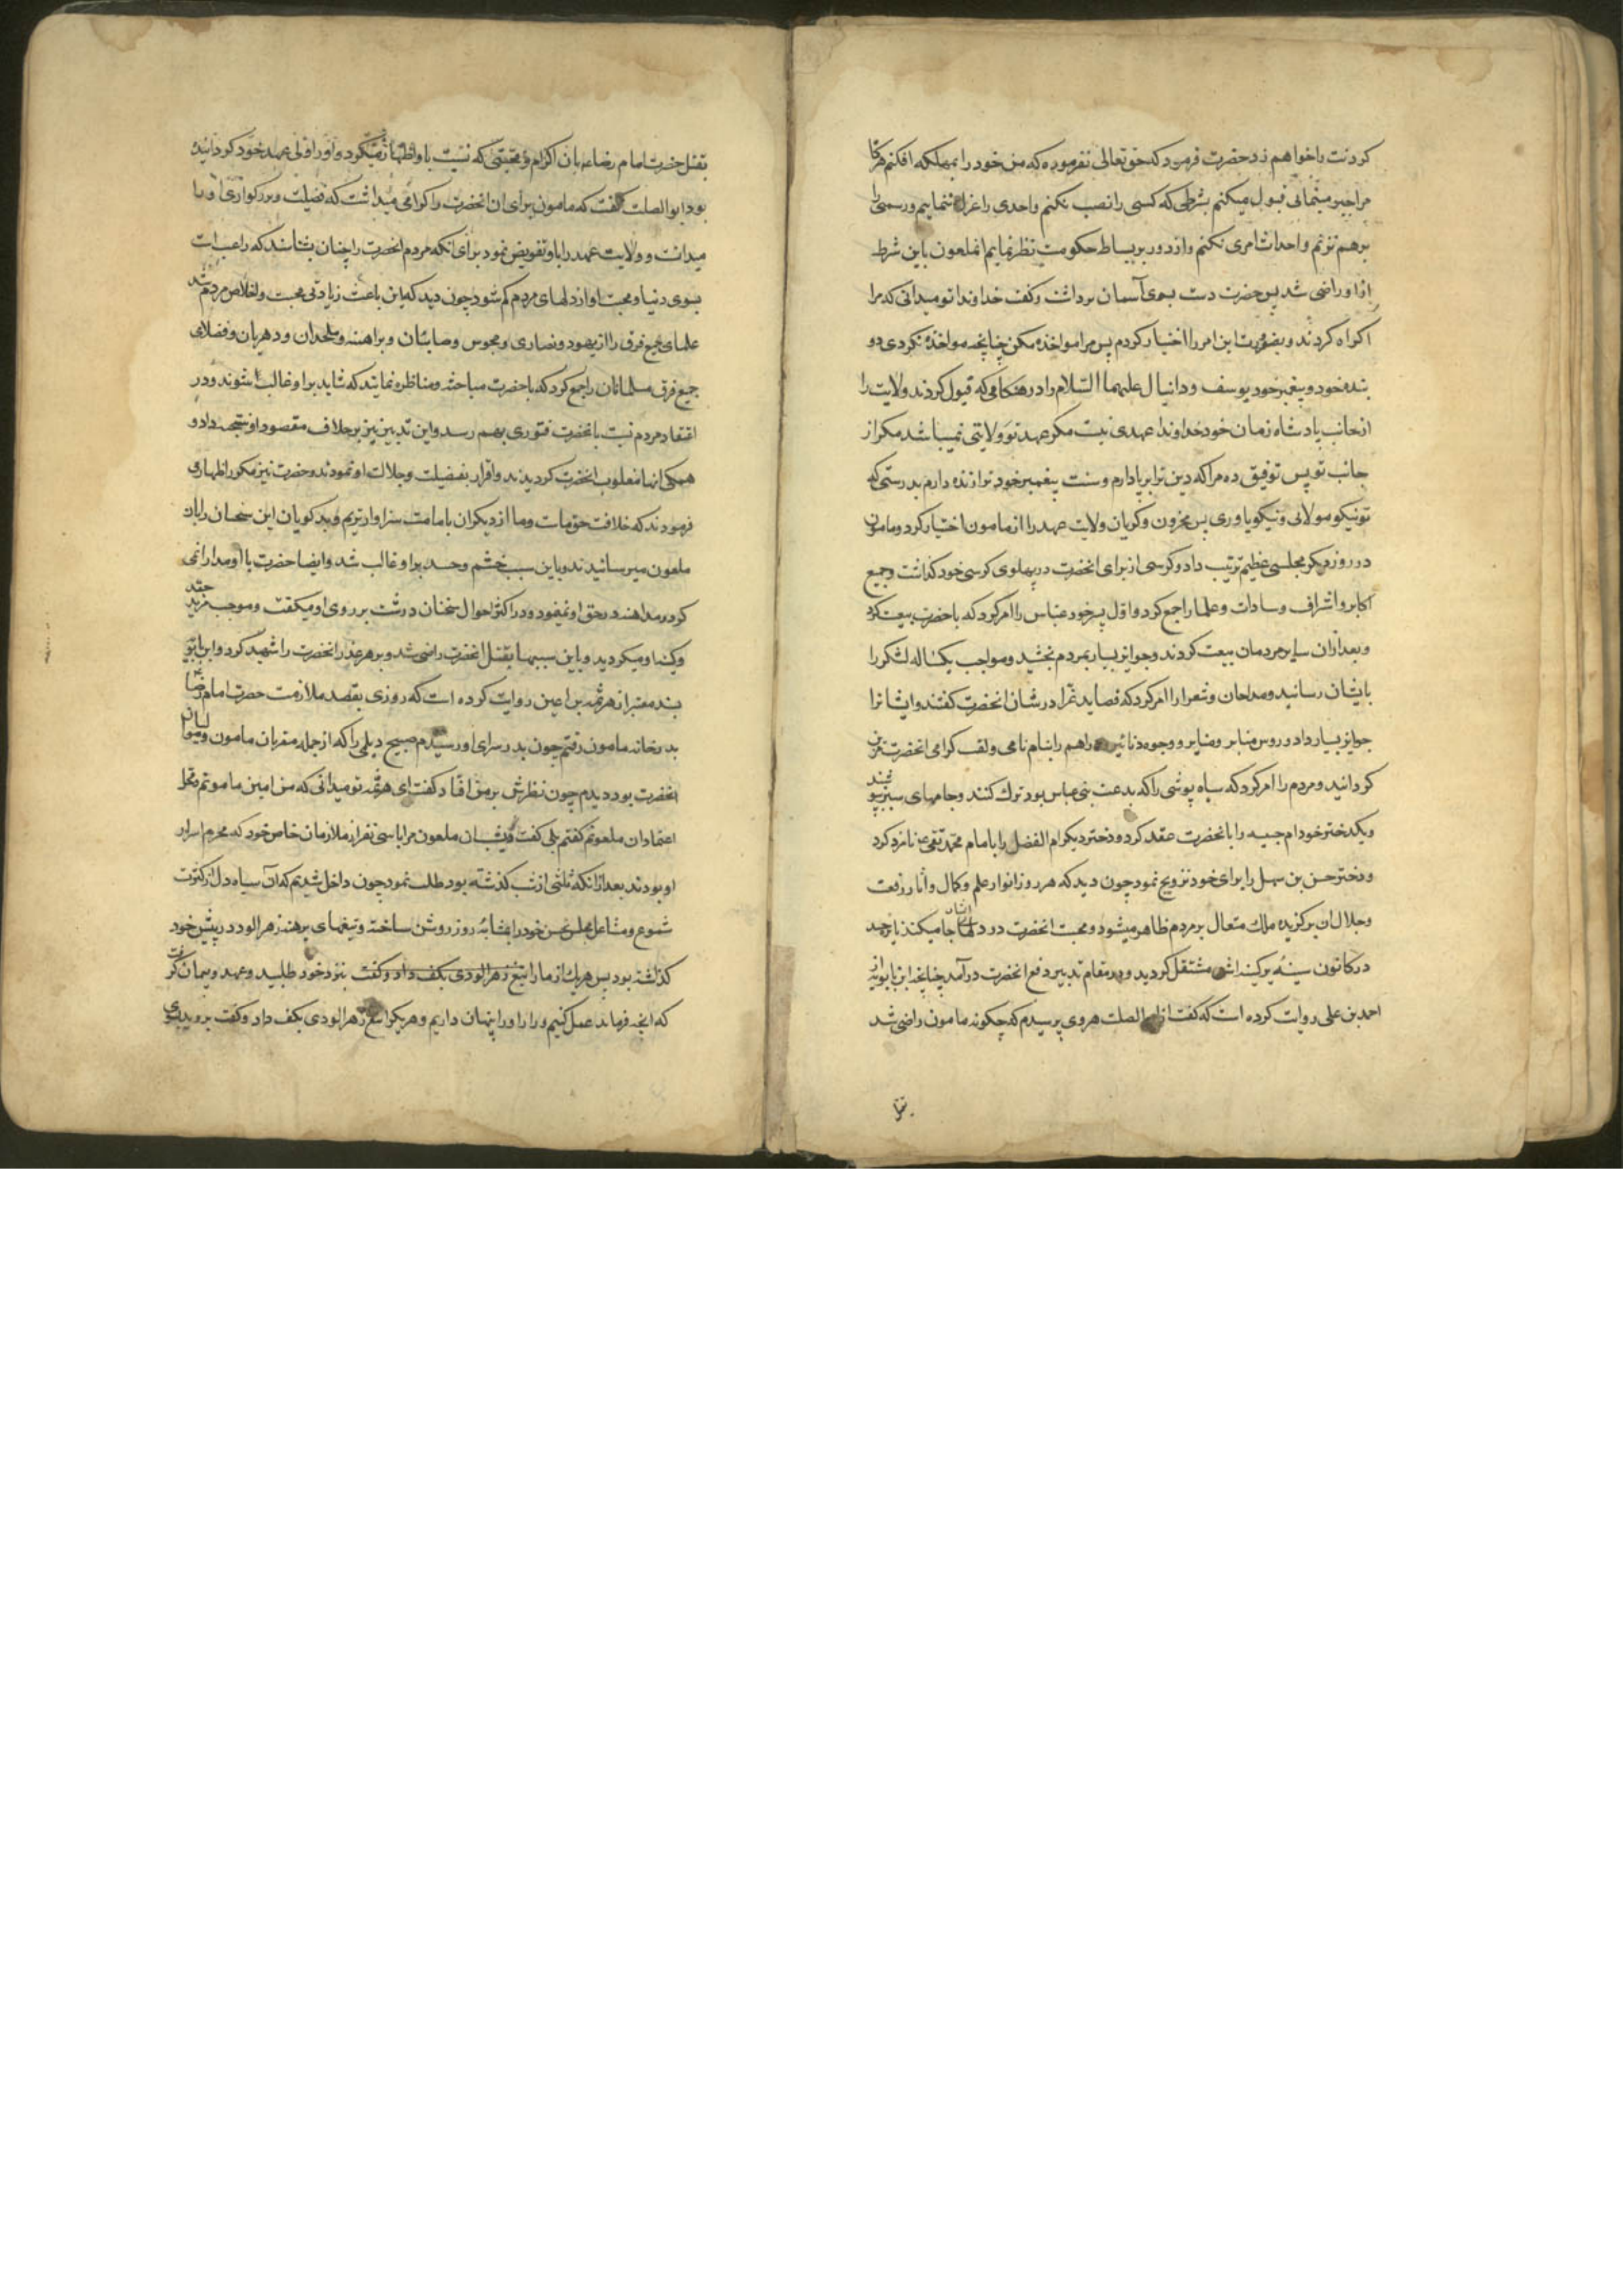 کردنت را خواهم زد حضرت فرمود که حق تعالی نفرموده که من خود را بمهلکه افکنم هرگاه
مرا جبر مینمائی قبول میکنم بشرطی که کسی را نصب نکنم و احدی را عزل ننمایم و رسمی را
برهم نزنم و احداث امری نکنم و از دور بر بساط حکومت نظر نمایم انملعون باین شرط
ازو راضی شد پس حضرت دست بسوی آسمان برداشت و گفت خداوندا تو میدانی که مرا
اکراه کردند و بضرورت این امر را اختیار کردم پس مرا مواخذه مکن چنانچه مواخذه نکردی دو
بنده خود و پیغمبر خود یوسف و دانیال علیهما السلام را در هنگامی که قبول کردند ولایت را
از جانب پادشاه زمان خود خداوندا عهدی نیست مکر عهد تو و ولایتی نمیباشد مکر از
جانب تو پس توفیق ده مرا که دین ترا برپا دارم و سنت پیغمبر خود ترا زنده دارم بدرستی که
تو نیکو مولائی و نیکو یاوری پس محزون و گریان ولایت عهد را از مامون اختیار کرد و مامون
در روز دیکر مجلسی عظیم ترتیب داد و کرسی از برای انحضرت در پهلوی کرسی خود گذاشت و جمیع
اکابر و اشراف و سادات و علما را جمع کرد و اول پسر خود عباس را امر کرد که با حضرت بیعت کرد
و بعد ازان سایر مردمان بیعت کردند و جوایز بسیار بمردم بخشید و مواجب یکساله لشکر را
بایشان رسانید و مداحان و شعرا را امر کرد که قصاید غرا در شان انحضرت گفتند و ایشانرا
جوایز بسیار داد و روس منابر و وجوه دنانیر و دراهم را بنام نامی و لقب گرامی انحضرت مزین
گردانید و مردم را امر کرد که سیاه پوشی را که بدعت بنی عباس بود ترک کنند و جامهای سبز بپوشند
و یکدختر خود ام حبیبه را بانحضرت عقد کرد و دختر دیکر ام الفضل را بامام محمد تقی ع نامزد کرد
و دختر حسن بن سهل را برای خود تزویج نمود چون دید که هر روز انوار علم و کمال و آثار رفعت
و جلال ان برگزیده ملک متعال بر مردم ظاهر میشود و محبت انحضرت در دلهای ایشان جا میکند نایره حسد
در کانون سینه پرکینه اش مشتعل گردید و در مقام تدبیر دفع انحضرت درآمد چنانچه ابن بابویه از
احمد بن علی روایت کرده است که گفت از ابو الصلت هروی پرسیدم که چکونه مامون راضی شد
بقتل حضرت امام رضا ع با ان اکرام و محبتی که نسبت باو اظهار میکرد و او را ولی عهد خود گردانیده
بود ابو الصلت گفت که مامون برای ان انحضرت را گرامی میداشت که فضیلت و بزرگواری او را
میدانست و ولایت عهد را باو تفویض نمود برای انکه مردم انحضرت را چنان بشناسند که راغب است
بسوی دنیا و محبت او از دلهای مردم کم شود چون دید که این باعث زیادتی محبت و اخلاص مردم شد
علمای جمیع فرق را از یهود و نصاری و مجوس و صابئان و براهمه و ملحدان و دهریان و فضلای
جمیع فرق مسلمانان را جمع کرد که با حضرت مباحثه و مناظره نمایند که شاید بر او غالب شوند و در
اعتقاد مردم نسبت بانحضرت فتوری بهم رسد و این تدبیر نیز بر خلاف مقصود او نتیجه داد و
همگی انها مغلوب انحضرت گردیدند و اقرار بفضیلت و جلالت او نمودند و حضرت نیز مکرر اظهار
فرمودند که خلافت حق ماست و ما از دیکران بامامت سزاوارتریم و بدگویان این سخنان را بان
ملعون میرسانیدند و باین سبب خشم و حسد بر او غالب شد و ایضا حضرت با او مدارا نمی
کرد و مداهنه در حق او نمینمود و در اکثر احوال سخنان درشت بر روی او میکفت و موجب مزید حقد
و کینه او میکردید و باین سببها بقتل انحضرت راضی شد و بزهر غدر انحضرت را شهید کرد و ابن بابویه
بسند معتبر از هرثمه بن اعین روایت کرده است که روزی بقصد ملازمت حضرت امام رضا
بدر خانه مامون رفتم چون بدر سرای او رسیدم صبیح دیلمی را که از جمله مقربان مامون و موالیان
انحضرت بود دیدم چون نظرش بر من افتاد گفت ای هرثمه تو میدانی که من امین مامونم و محل
اعتماد ان ملعونم گفتم بلی گفت دیشب ان ملعون مرا با سی نفر از ملازمان خاص خود که محرم اسرار
او بودند بعد ازانکه ثلثی از شب گذشته بود طلب نمود چون داخل شدیم که ان سیاه دل از کثرت
شموع و مشاعل مجلس نحس خود را بمثابه روز روشن ساخته و تیغهای برهنه زهرالود در پیش خود
گذاشته بود پس هر یک از ما را تیغ زهرالودی بکف داد و گفت بنزد خود طلبید و عهد و پیمان گرفت
که انچه فرماید عمل کنیم و راز او را پنهان داریم و هر یکرا تیغ زهرالودی بکف داد و گفت بروید بسوی